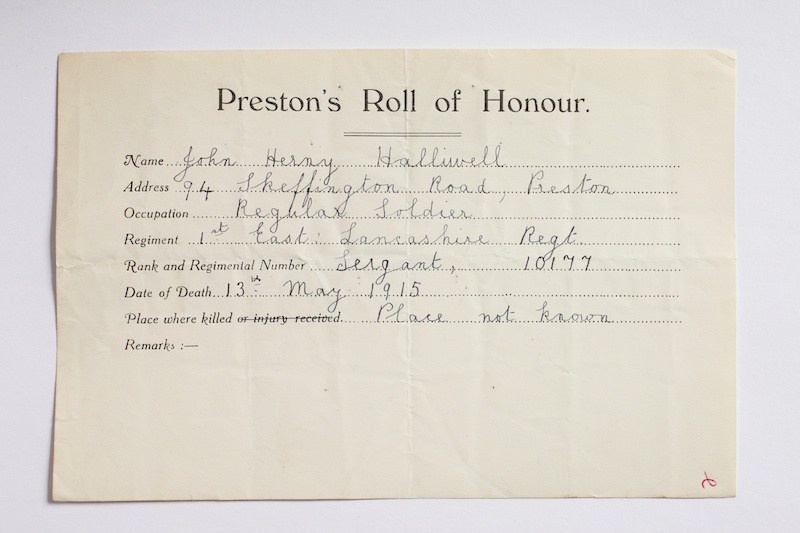 Preston's Roll of Honour.
Name John Herny Halliwell
Address 94 Skeffington Road, Preston
Occupation Regular Soldier
Regiment 1st East: Lancashire Regt.
Rank and Regimental Number Sergant, 10177
Date of Death 13th May 1915
Place where killed or injury received. Place not known
Remarks :—